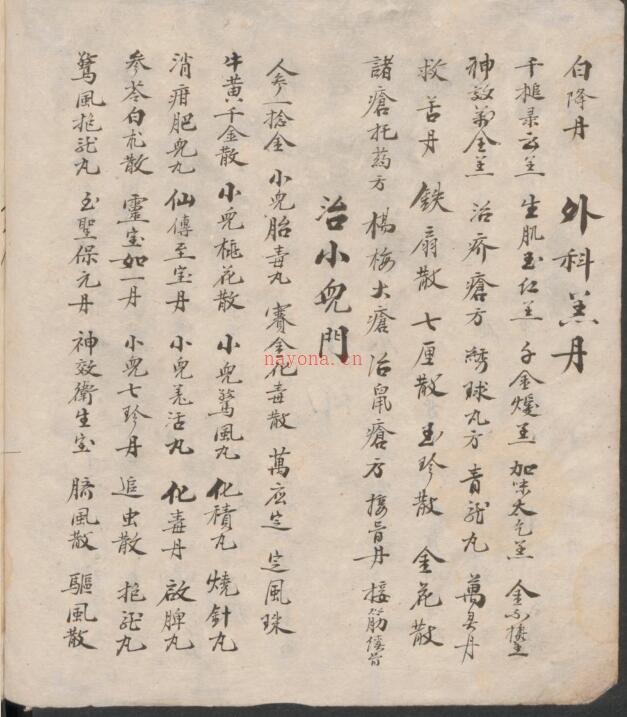 白降丹 外科羔丹
千槌录云羔 生肌玉红羔 千金煖 加味太乙羔 金不
神效萬全羔 治疥瘡方 綉球丸方 青龙丸 萬灵丹
救苦丹 鉄扇散 七厘散 玉珍散 金花散
諸瘡托药方 楊梅大瘡 治鼠瘡方 接骨丹 接筋
治小兒門
人参一捻金 小兒胎毒丸 賽金化毒散 萬应定 定風珠
牛黄千金散 小兒花散 小兒驚風丸 化積丸 燒針丸
消疳肥兒丸 仙傳至宝丹 小兒羌活丸 化毒丹 啟脾丸
参苓白术散 靈宝如一丹 小兒七珍丹 追虫散 抱龙丸
驚風抱龙丸 玉聖保元丹 神效衛生宝 臍風散 驅風散
nayona.cn